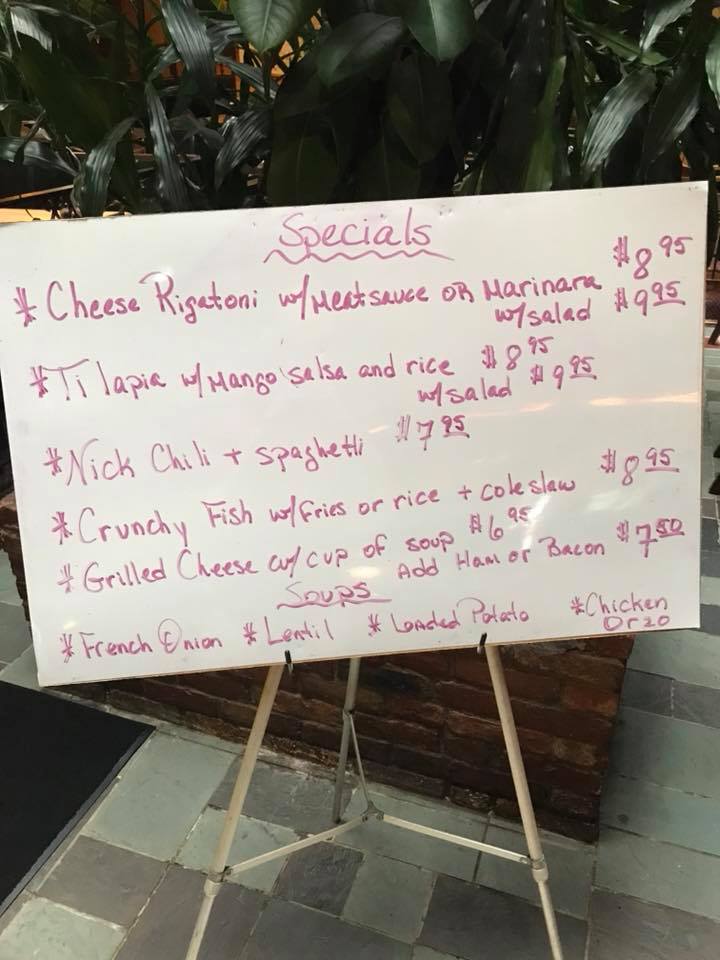 Specials
* Cheese Rigatoni w/Meatsauce OR Marinara $8.95
w/salad $9.95
* Tilapia w/Mango salsa and rice $8.95
w/salad $9.95
* Nick Chili + spaghetti $7.95
* Crunchy Fish w/fries or rice + coleslaw $8.95
* Grilled Cheese w/ cup of soup $6.95
Add Ham or Bacon $7.50
Soups
* French Onion * Lentil * Loaded Potato * Chicken Orzo